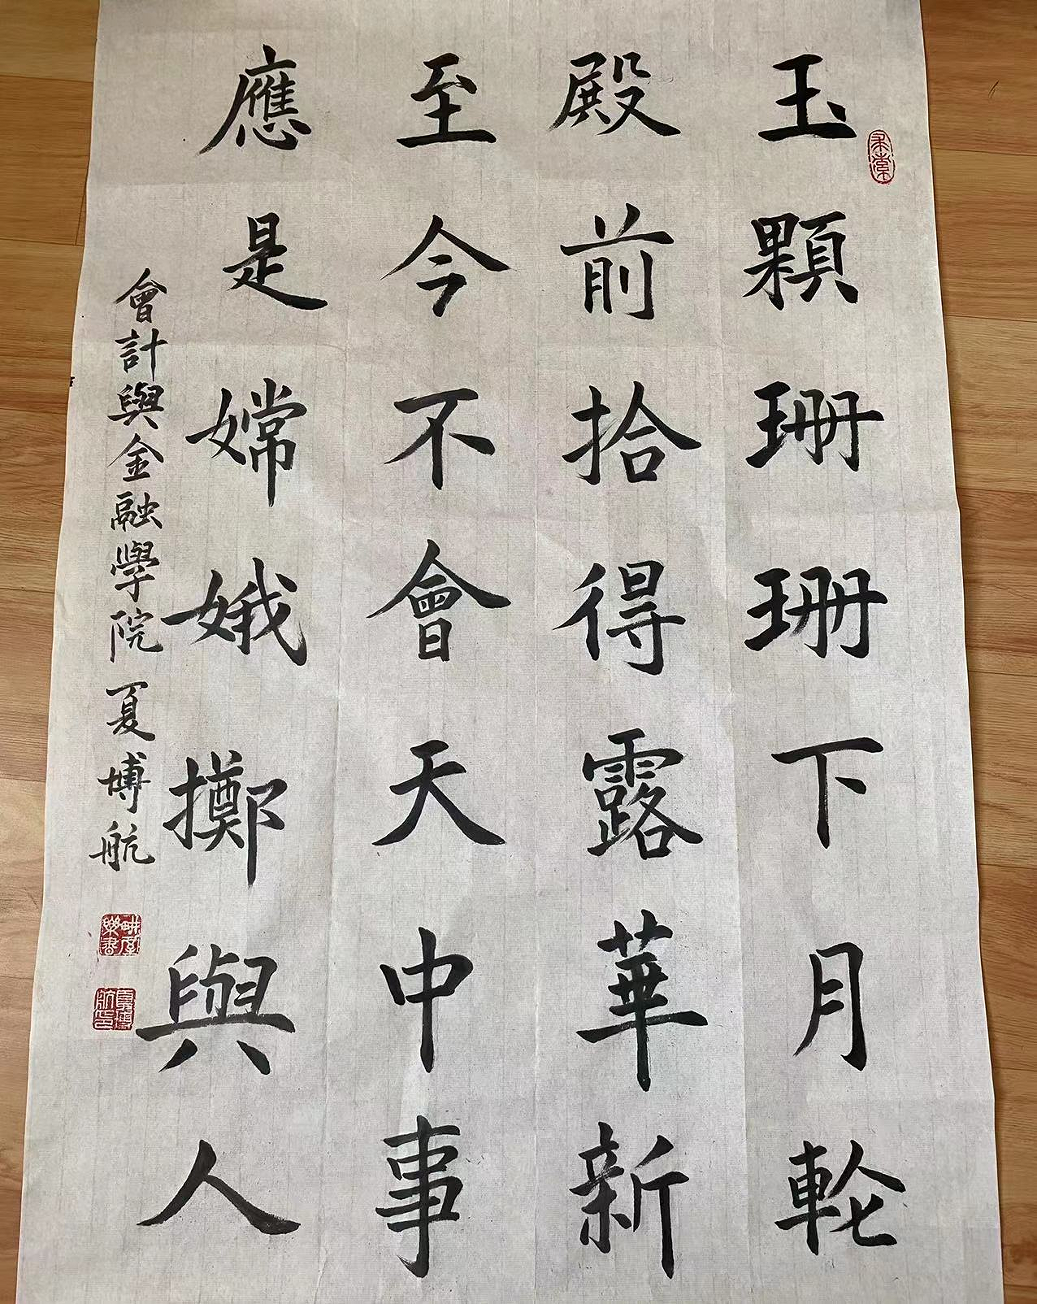 玉顆珊珊下月輪
殿前拾得露華新
至今不會天中事
應是嫦娥擲與人
會計與金融學院 夏博航